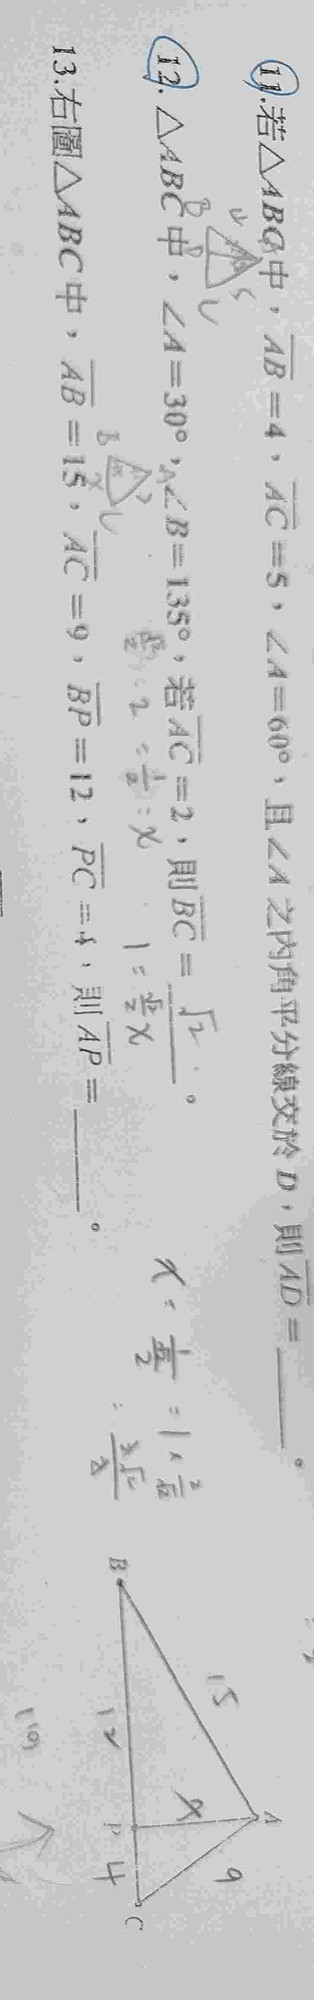 11.若△ABC中，AB=4，AC=5，∠A=60°，且∠A之內角平分線交於D，則AD=______。
12.△ABC中，∠A=30°，∠B=135°，若AC=2，則BC=√2。
√2/2:2=1/2:x
1=√2/2x
x=1/(√2/2)=1×2/√2
=2√2/2
13.右圖△ABC中，AB=15，AC=9，BP=12，PC=4，則AP=______。
A
15
x
9
B
12
P
4
C